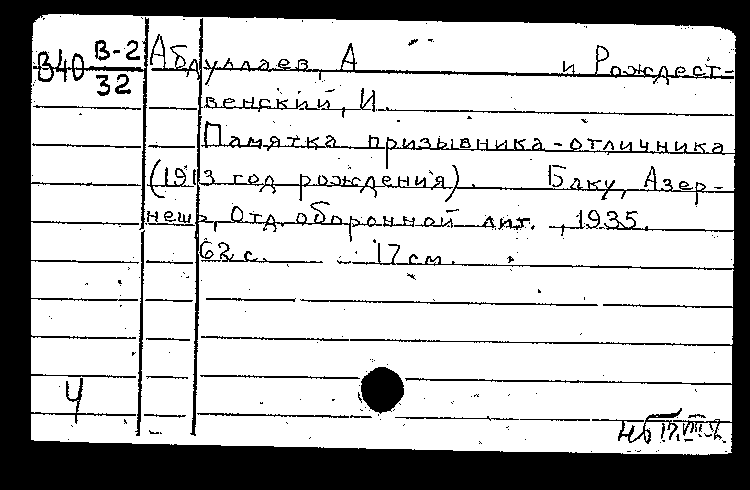 В40 В-2/32
Абдуллаев, А и Рождест-
венский, И.
Памятка призывника-отличника
(1913 год рождения). Баку, Азер-
нешр, Отд. оборонной лит., 1935.
62 с. 17 см.
Ч